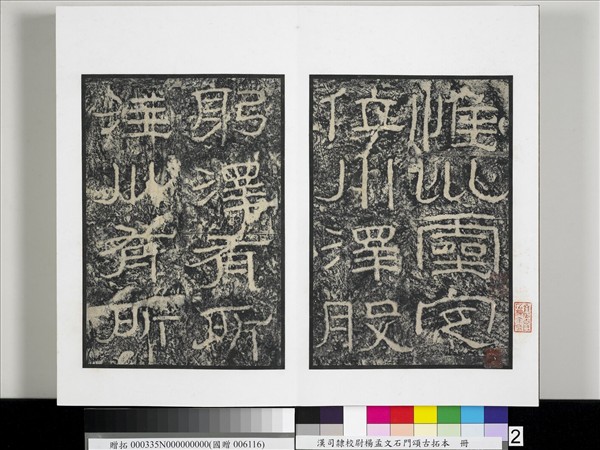 惟巛靈定
位川澤股
躬澤有所
注川有所
贈拓 000335N000000000(國贈 006116)
漢司隸校尉楊孟文石門頌古拓本 冊
2